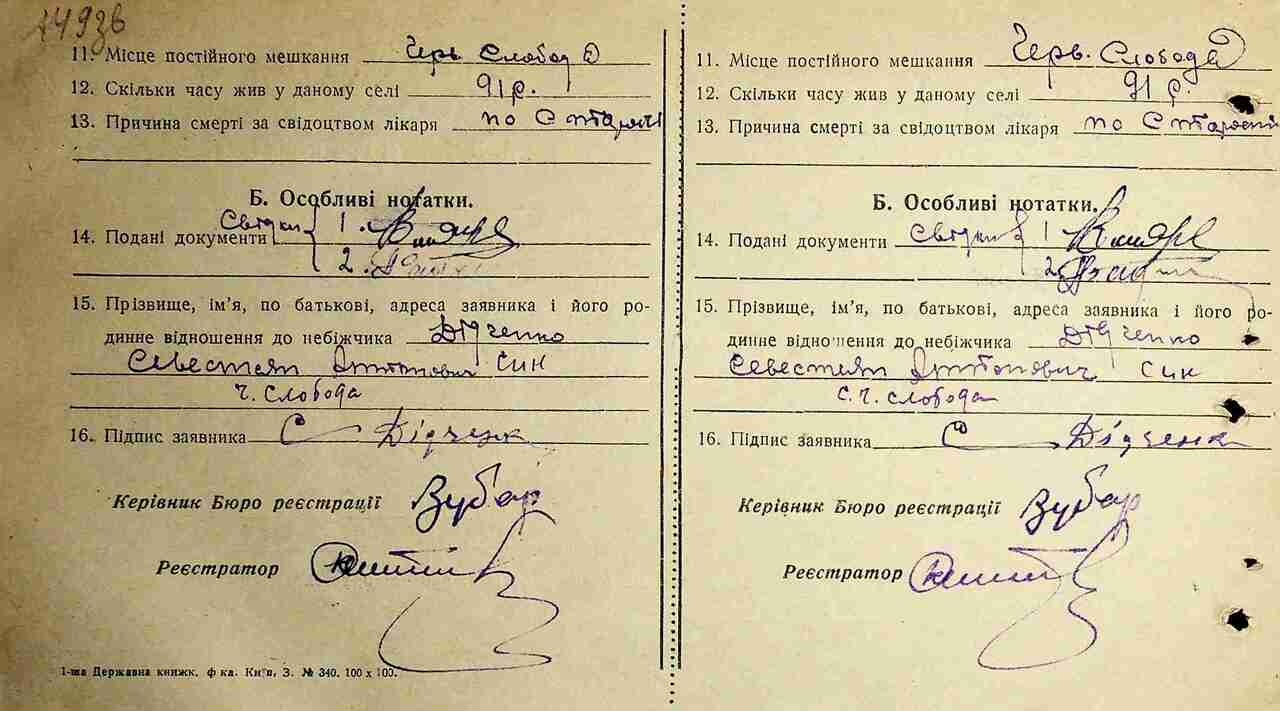 11. Місце постійного мешкання Черв. Слобода
12. Скільки часу жив у даному селі 91 р.
13. Причина смерті за свідоцтвом лікаря по Старості
Б. Особливі нотатки.
14. Подані документи Свідки 1.
2.
15. Прізвище, ім'я, по батькові, адреса заявника і його ро-
динне відношення до небіжчика Дідченко
Севестян Антонович син
ч. Слобода
16. Підпис заявника С Дідченк
Керівник Бюро реєстрації Зубар
Реєстратор
1-ша Державна книжк. ф-ка. Київ, З. № 340. 100 x 100.
11. Місце постійного мешкання Черв. Слобода
12. Скільки часу жив у даному селі 91 р.
13. Причина смерті за свідоцтвом лікаря по Старости
Б. Особливі нотатки.
14. Подані документи Свідки 1
2
15. Прізвище, ім'я, по батькові, адреса заявника і його ро-
динне відношення до небіжчика Дідченко
Севестян Антонович син
с. ч. слобода
16. Підпис заявника С Дідченк
Керівник Бюро реєстрації Зубар
Реєстратор